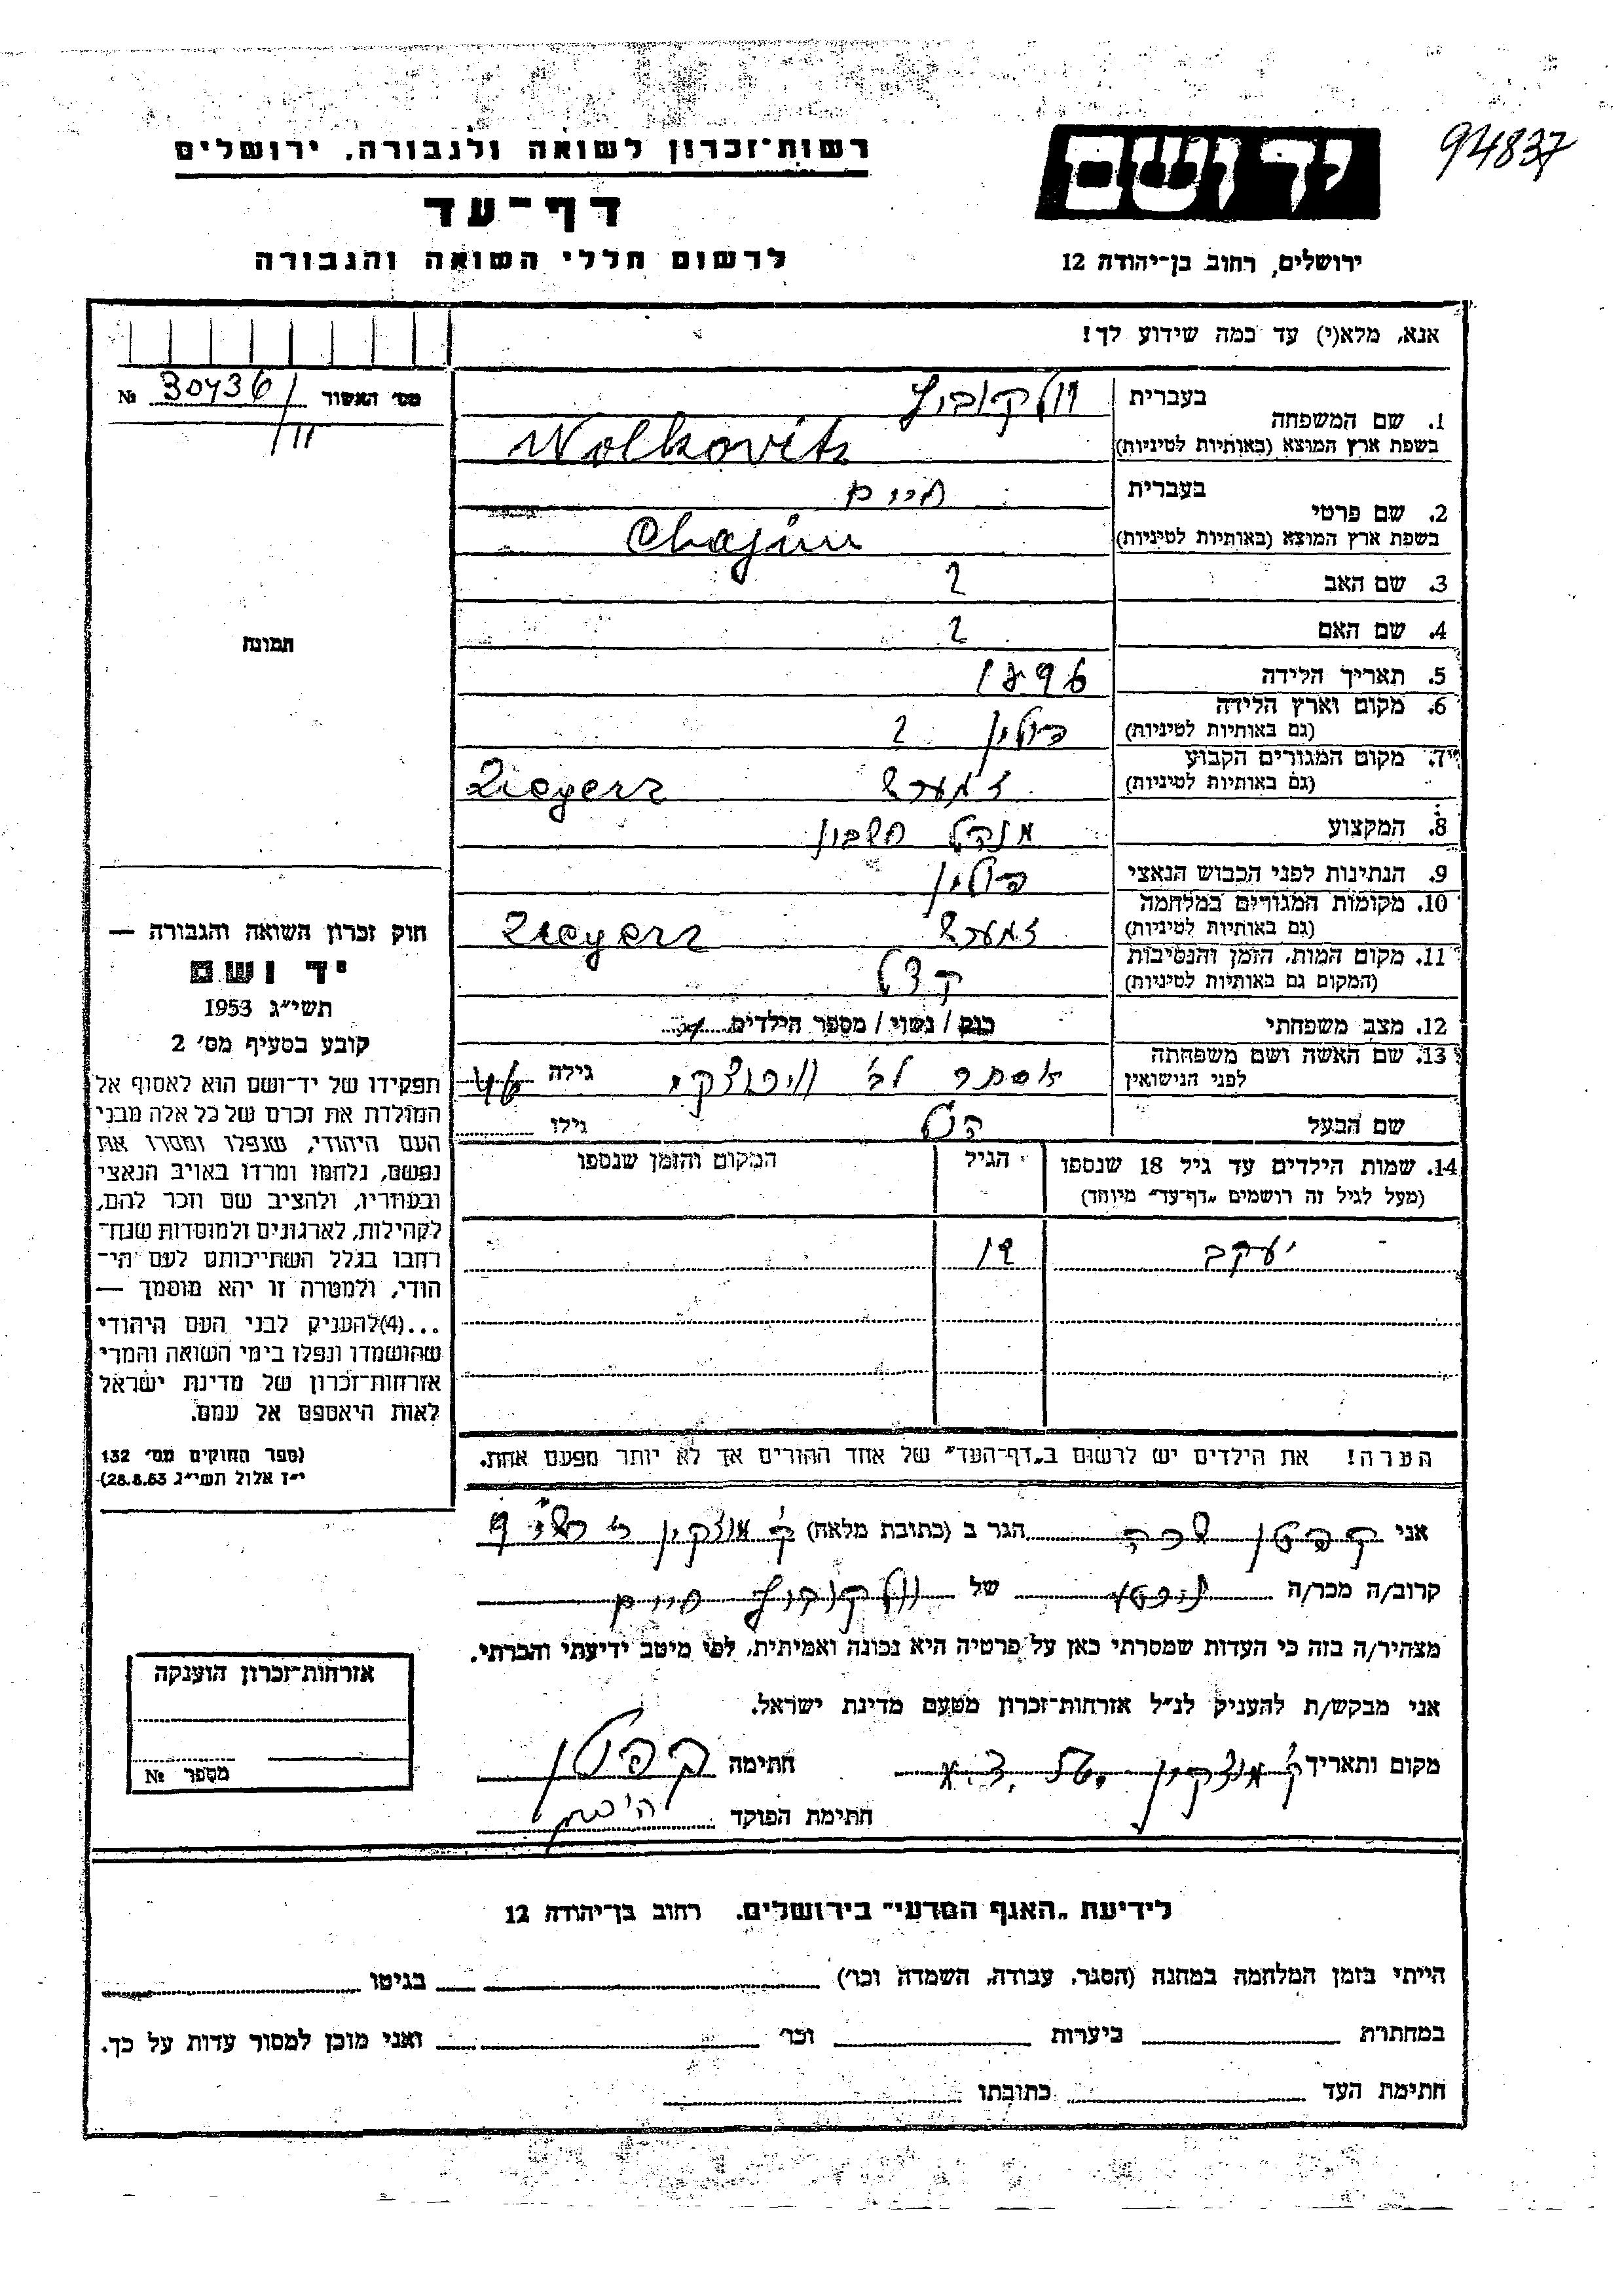 94837
יד ושם
ירושלים, רחוב בן־יהודה 12
רשות־זכרון לשואה ולגבורה, ירושלים
דף־עד
לרשום חללי השואה והגבורה
אנא, מלא(י) עד כמה שידוע לך!
מס׳ האשור 30436 №
/11
1. שם המשפחה
בעברית וולקוביץ
בשפת ארץ המוצא (באותיות לטיניות) Wolkovits
2. שם פרטי
בעברית חיים
בשפת ארץ המוצא (באותיות לטיניות) Chajim
3. שם האב ?
4. שם האם ?
5. תאריך הלידה 1896
6. מקום וארץ הלידה פולין ?
(גם באותיות לטיניות)
7. מקום המגורים הקבוע Zgierz
(גם באותיות לטיניות)
8. המקצוע מנהל חשבון
9. הנתינות לפני הכבוש הנאצי פולין
10. מקומות המגורים במלחמה Zgierz
(גם באותיות לטיניות)
11. מקום המות, הזמן והנסיבות
(המקום גם באותיות לטיניות)
12. מצב משפחתי רווק / נשוי / מספר הילדים
13. שם האשה ושם משפחתה אסתר לב׳ גילה 46
לפני הנישואין
שם הבעל גילו
14. שמות הילדים עד גיל 18 שנספו הגיל המקום והזמן שנספו
(מעל לגיל זה רושמים „דף־עד״ מיוחד)
יעקב 19
הערה! את הילדים יש לרשום ב„דף־העד״ של אחד ההורים אך לא יותר מפעם אחת.
תמונה
חוק זכרון השואה והגבורה —
יד ושם
תשי״ג 1953
קובע בסעיף מס׳ 2
תפקידו של יד־ושם הוא לאסוף אל
המולדת את זכרם של כל אלה מבני
העם היהודי, שנפלו ומסרו את
נפשם, נלחמו ומרדו באויב הנאצי
ובעוזריו, ולהציב שם וזכר להם,
לקהילות, לארגונים ולמוסדות שנח־
רבו בגלל השתייכותם לעם הי־
הודי, ולמטרה זו יהא מוסמך —
...(4)להעניק לבני העם היהודי
שהושמדו ונפלו בימי השואה והמרי
אזרחות־זכרון של מדינת ישראל
לאות היאספם אל עמם.
(ספר החוקים מס׳ 132
י״ז אלול תשי״ג 28.8.53)
אני קפלן שרה הגר ב (כתובת מלאה) ק׳ מוצקין
קרוב/ה מכר/ה של וולקוביץ חיים
מצהיר/ה בזה כי העדות שמסרתי כאן על פרטיה היא נכונה ואמיתית, לפי מיטב ידיעתי והכרתי.
אני מבקש/ת להעניק לנ״ל אזרחות־זכרון מטעם מדינת ישראל.
מקום ותאריך ק׳ מוצקין חתימה קפלן
חתימת הפוקד
אזרחות־זכרון הוענקה
מספר №
לידיעת „האגף המדעי״ בירושלים, רחוב בן־יהודה 12
הייתי בזמן המלחמה במחנה (הסגר, עבודה, השמדה וכו׳) בגיטו
במחתרת ביערות וכו׳ ואני מוכן למסור עדות על כך.
חתימת העד כתובתו